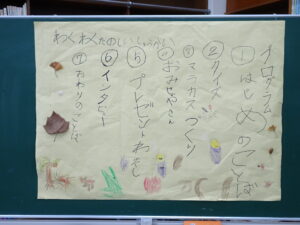 わくわくたのしい
プログラム
①はじめのことば
②クイズ
③マラカスづくり
④おみせやさん
⑤プレゼントわたし
⑥インタビュー
⑦おわりのことば